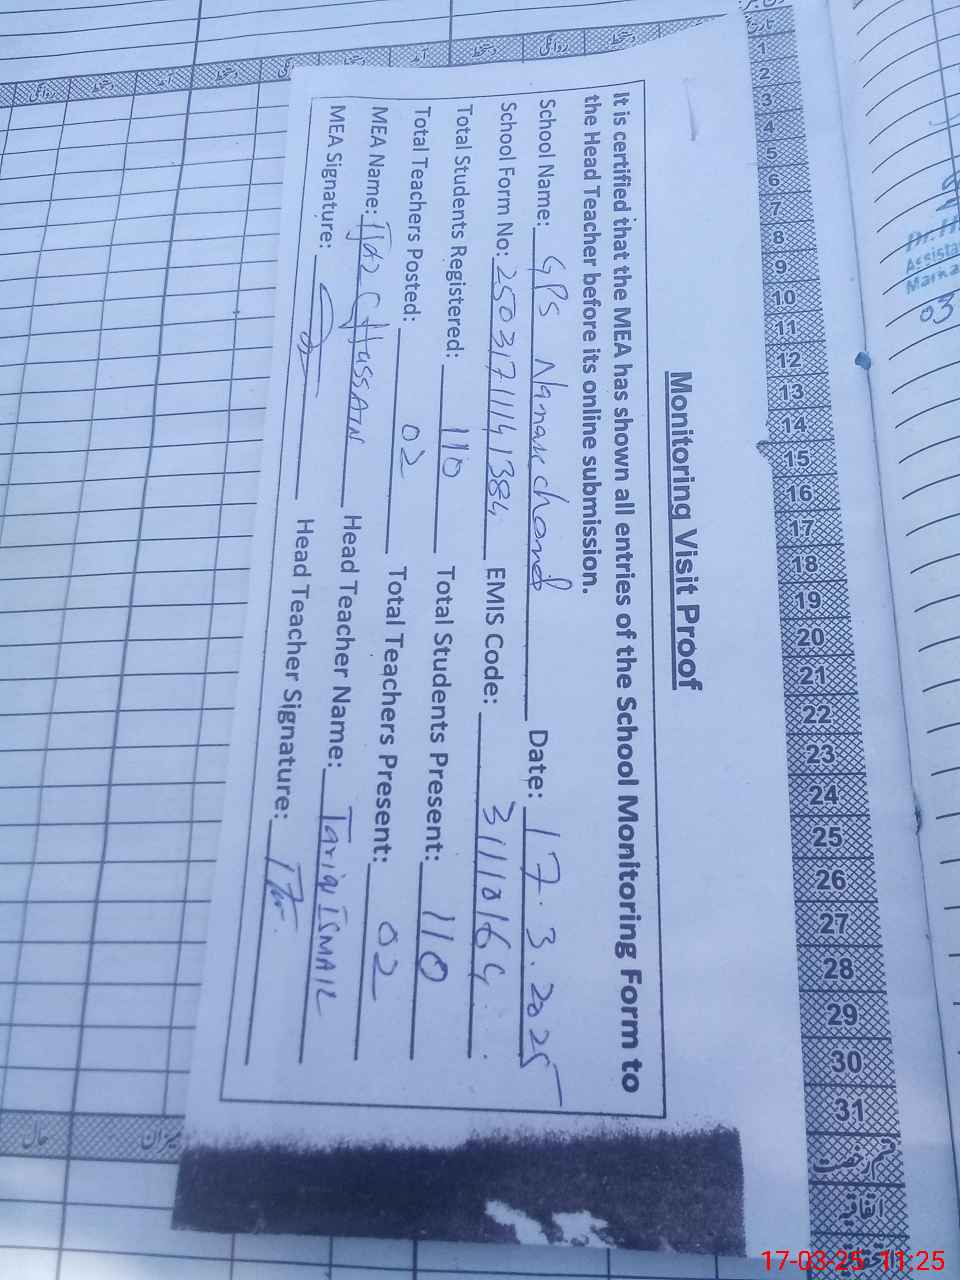 Monitoring Visit Proof
It is certified that the MEA has shown all entries of the School Monitoring Form to
the Head Teacher before its online submission.
School Name: GPS Nanak chand Date: 17.3.2025
School Form No: EMIS Code:
Total Students Registered: 110 Total Students Present: 110
Total Teachers Posted: 02 Total Teachers Present: 02
MEA Name: Ijaz Hussain Head Teacher Name: Tariq ISMAIL
MEA Signature: Head Teacher Signature:
1
2
3
4
5
6
7
8
9
10
11
12
13
14
15
16
17
18
19
20
21
22
23
24
25
26
27
28
29
30
31
قسم رخصت
اتفاقیہ
میزان
حال
Assista
Marka
03
17-03-25 11:25